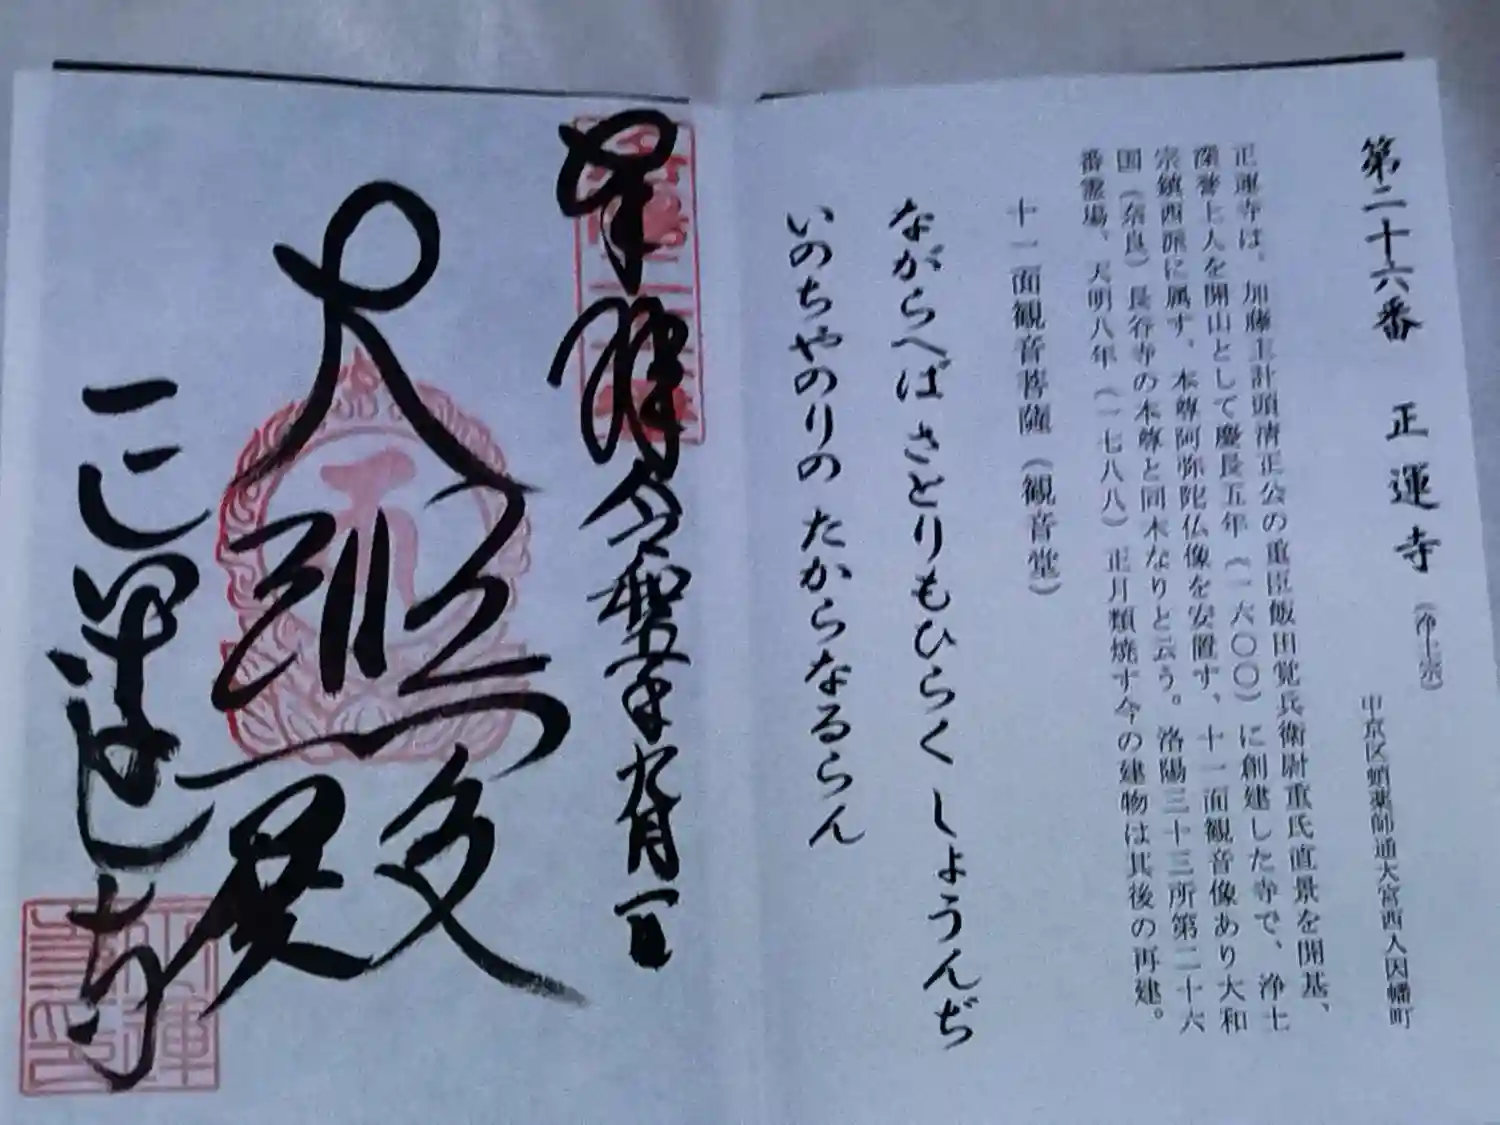 第二十六番 正運寺 (浄土宗)
中京区蛸薬師通大宮西入因幡町
正運寺は、加藤主計頭清正公の重臣飯田覚兵衛尉重氏直景を開基、
深誉上人を開山として慶長五年(一六〇〇)に創建した寺で、浄土
宗鎮西派に属す。本尊阿弥陀仏像を安置す、十一面観音像あり大和
国(奈良)長谷寺の本尊と同木なりと云う。洛陽三十三所第二十六
番霊場、天明八年(一七八八)正月類焼す今の建物は其後の再建。
十一面観音菩薩(観音堂)
ながらへば さとりもひらく しょうんぢ
いのちやのりの たからなるらん
奉拝 令和五年九月一日
大悲殿
正運寺